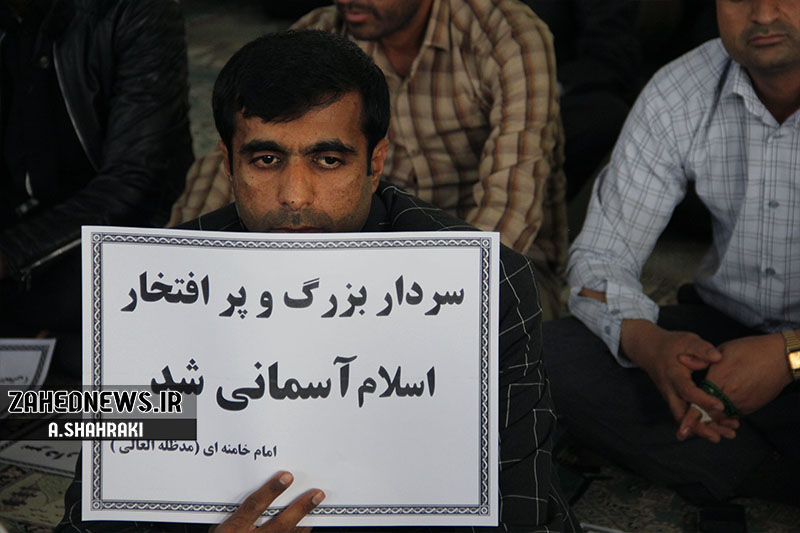 سردار بزرگ و پر افتخار
اسلام آسمانی شد
امام خامنه ای (مدظله العالی)
ZAHEDNEWS.IR
A.SHAHRAKI